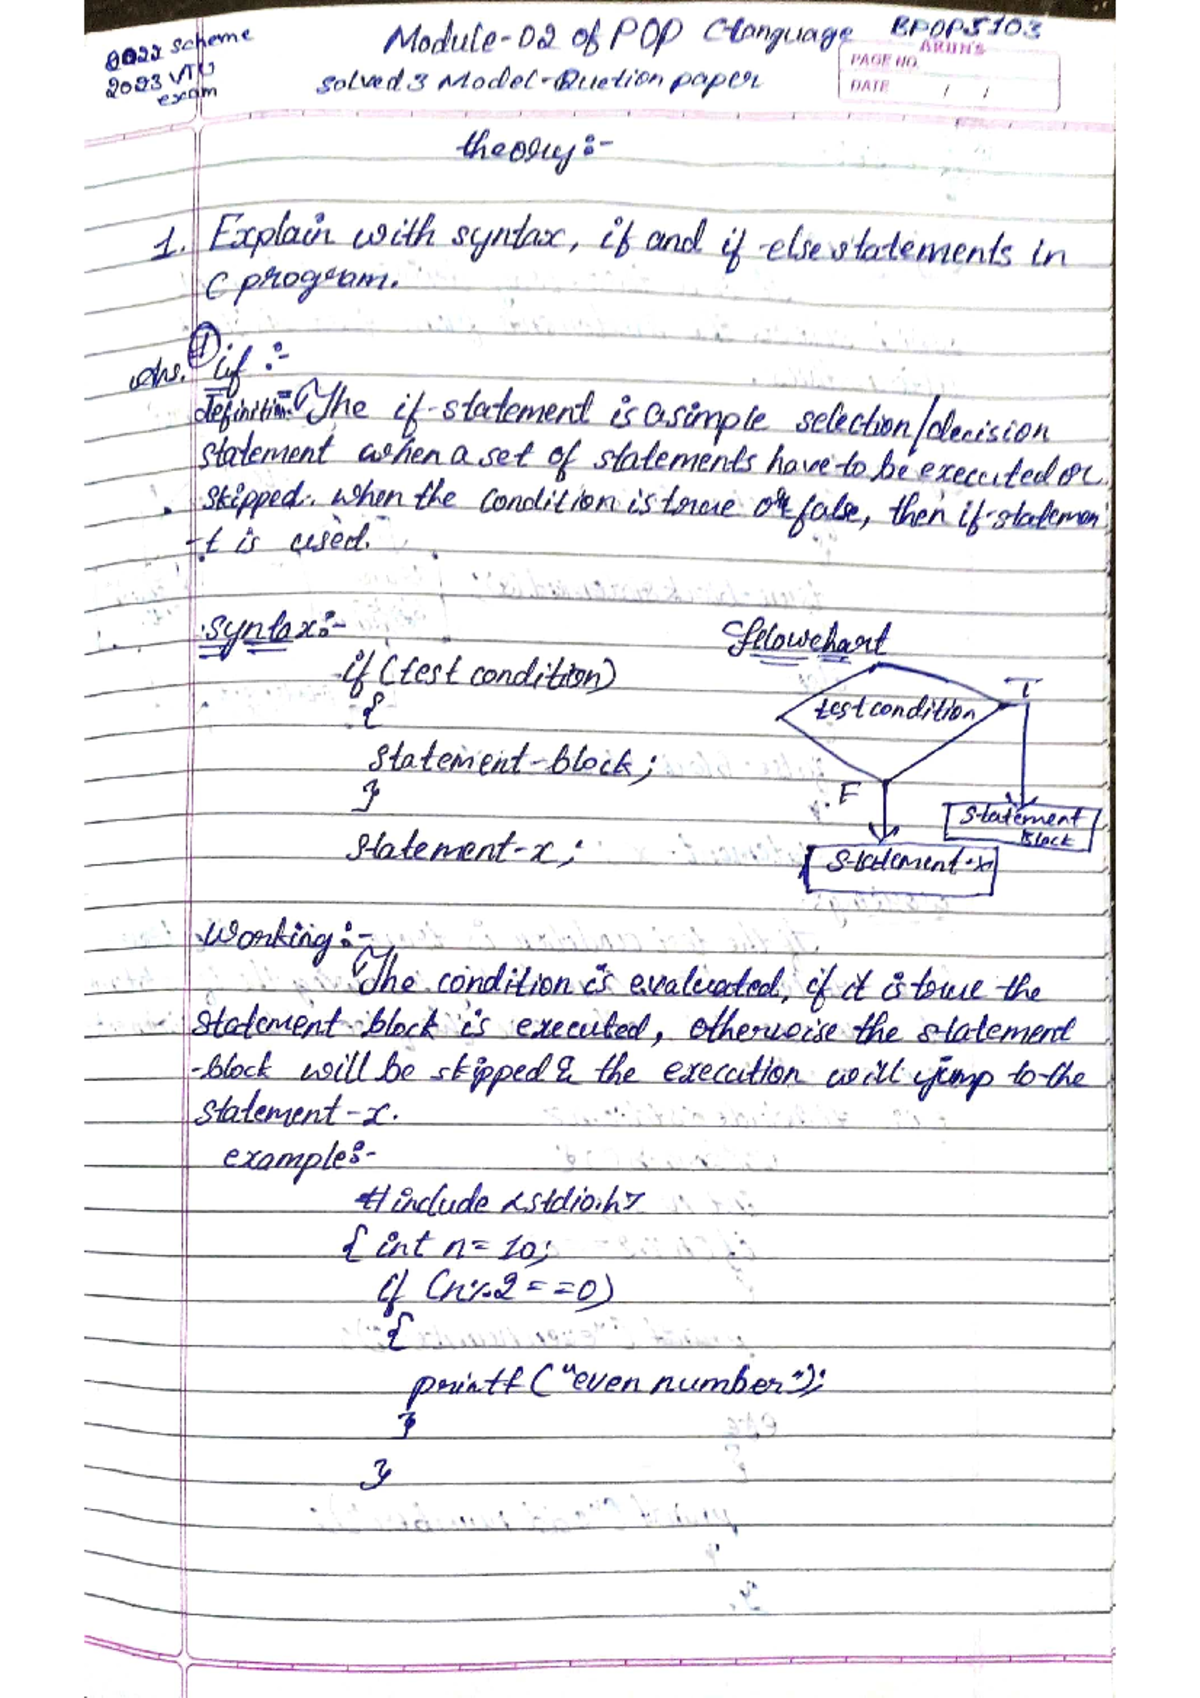 2022 Scheme
2023 VTU
exam
Module-02 of POP C language BPOPS103
Solved 3 Model-Quetion paper
ARUN'S
PAGE NO.
DATE / /
theory:-
1. Explain with syntax, if and if-else statements in
C program.
Ans. ① if :-
definition:- The if-statement is a simple selection/decision
statement when a set of statements have to be executed or
skipped. when the condition is true or false, then if-statemen
-t is used.
Syntax:-
if (test condition)
{
statement-block;
}
statement-x;
Flowchart
test condition
T
F
Statement
Block
Statement-x
Working:-
The condition is evaluated, if it is true the
statement block is executed, otherwise the statement
-block will be skipped & the execution will jump to the
statement-x.
example:-
#include <stdio.h>
{ int n= 10;
if (n%2 = =0)
{
printf ("even number");
}
}